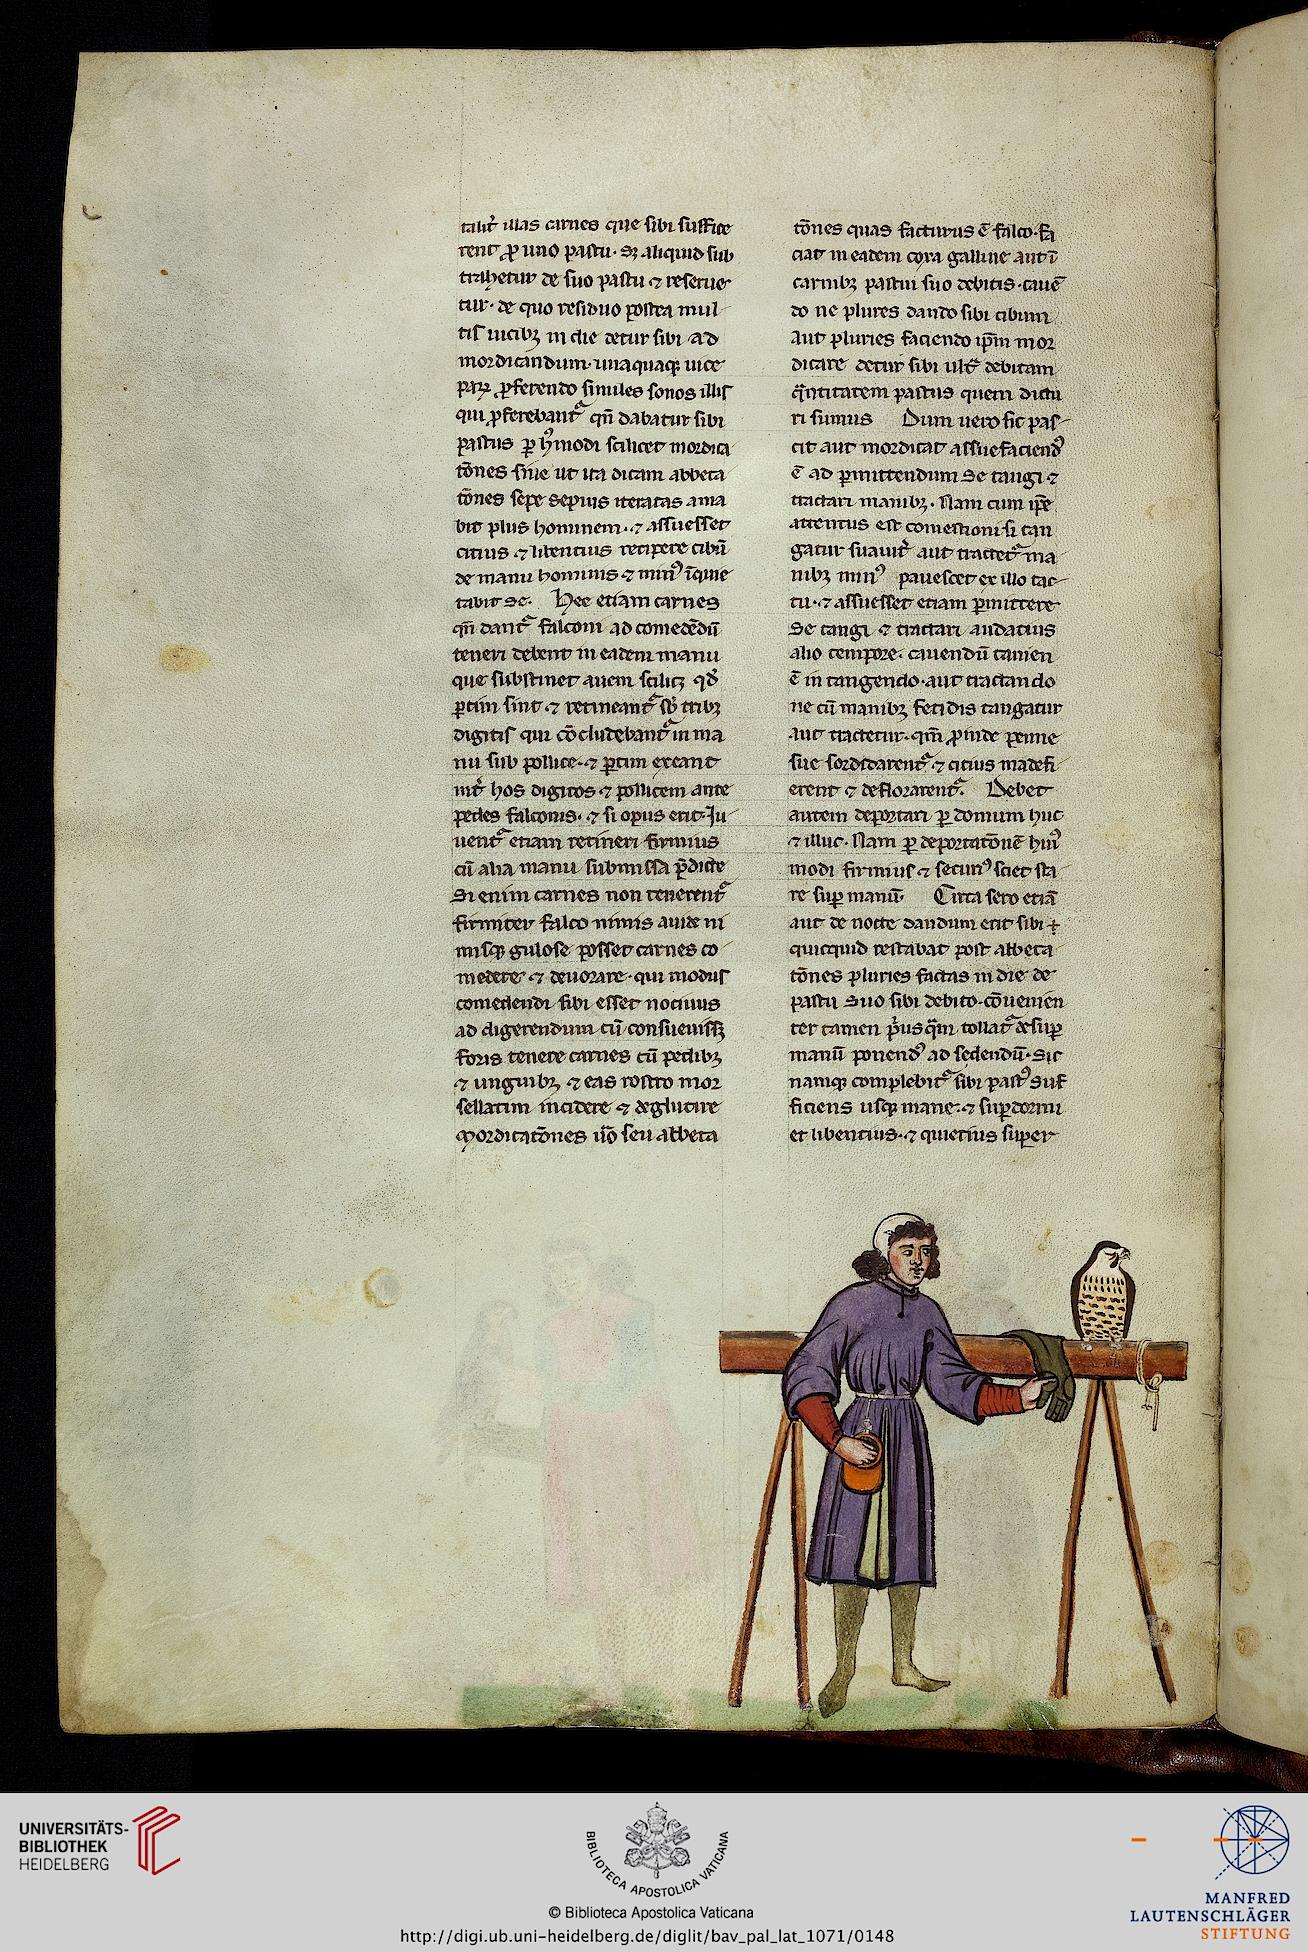 talit᷑ illas carnes que sibi suffice
rent ꝓ uno pastu· sꝫ aliquid sub
trahetur de suo pastu ⁊ reserue
tur· de quo residuo postea mul
tis uicibꝫ in die detur sibi ad
mordicandum· unaquaqꝫ uice
ꝓferendo similes sonos illis
qui ꝓferebant᷑ qn̄ dabatur sibi
pastus ꝑ hꝰmodi scilicet mordica
tōnes siue ut ita dicam abbeca
tōnes sepe sepius iteratas ama
bit plus hominem· ⁊ assuesset
citius ⁊ libentius recipere cibū
de manu hominis ⁊ minꝰ īquie
tabit se· Hec etiam carnes
qn̄ dant᷑ falconi ad comedēdū
teneri debent in eadem manu
que sustinet auem scilicꝫ qđ
ꝑtim sint ⁊ retineant᷑ sb᷑ tribꝫ
digitis qui cōcludebant᷑ in ma
nu sub pollice· ⁊ ꝑtim exeant
int᷑ hos digitos ⁊ pollicem ante
pedes falconis· ⁊ si opus erit Iu
uent᷑ etiam retineri firmius
cū alia manu submissa p̄dicte
Si enim carnes non tenerent᷑
firmiter falco nimis auide ni
misqꝫ gulose posset carnes co
medere ⁊ deuorare· qui modus
comedendi sibi esset nociuus
ad digerendum cū consueuissꝫ
foris tenere carnes cū pedibꝫ
⁊ unguibꝫ ⁊ eas rostro mor
sellatim incidere ⁊ deglutire
Mordicatōnes ūo seu abbeca
tōnes quas facturus ē falco· fa
ciat in eadem coxa galline aut ī
carnibꝫ pastui suo debitis· cauē
do ne plures dando sibi cibum
aut pluries faciendo ip̄m mor
dicare detur sibi ult᷑ debitam
q̄ntitatem pastus quem dictu
ri sumus Dum uero sic pas
cit aut mordicat assuefaciendꝰ
ē ad ꝑmittendum se tangi ⁊
tractari manibꝫ· Nam cum ip̄e
attentus est comestioni si tan
gatur suauit᷑ aut tractet᷑ ma
nibꝫ minꝰ pauescet ex illo tac
tu· ⁊ assuesset etiam ꝑmittere
se tangi ⁊ tractari audacius
alio tempore· cauendū tamen
ē in tangendo· aut tractando
ne cū manibꝫ fetidis tangatur
aut tractetur· qm̄ ꝓinde penne
sue sordidarent᷑ ⁊ citius madefi
erent ⁊ deflorarent᷑. Debet
autem deportari ꝑ domum huc
⁊ illuc· Nam ꝑ deportatōnē hui᷒
modi firmius ⁊ securiꝰ sciet sta
re suꝑ manū· Circa sero etiā
aut de nocte dandum erit sibi
quicquid restabat post abbeca
tōnes pluries factas in die de
pastu suo sibi debito· cōuenien
ter tamen p᷑us qᷓm tollat᷑ desuꝑ
manū ponendꝰ ad sedendū· Sic
namqꝫ complebit᷑ sibi pastꝰ suf
ficiens usqꝫ mane· ⁊ suꝑdormi
et libentius· ⁊ quietius super
UNIVERSITÄTS-
BIBLIOTHEK
HEIDELBERG
BIBLIOTECA APOSTOLICA VATICANA
© Biblioteca Apostolica Vaticana
http://digi.ub.uni-heidelberg.de/diglit/bav_pal_lat_1071/0148
MANFRED
LAUTENSCHLÄGER
STIFTUNG